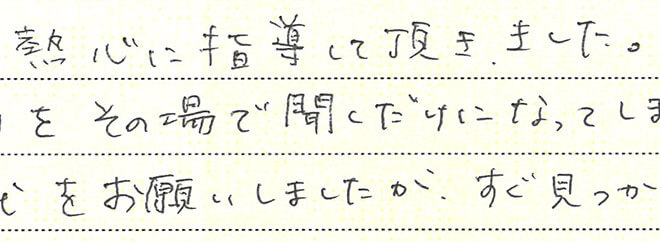 熱心に指導して頂きました。
をその場で聞くだけになってしま
をお願いしましたが、すぐ見つか